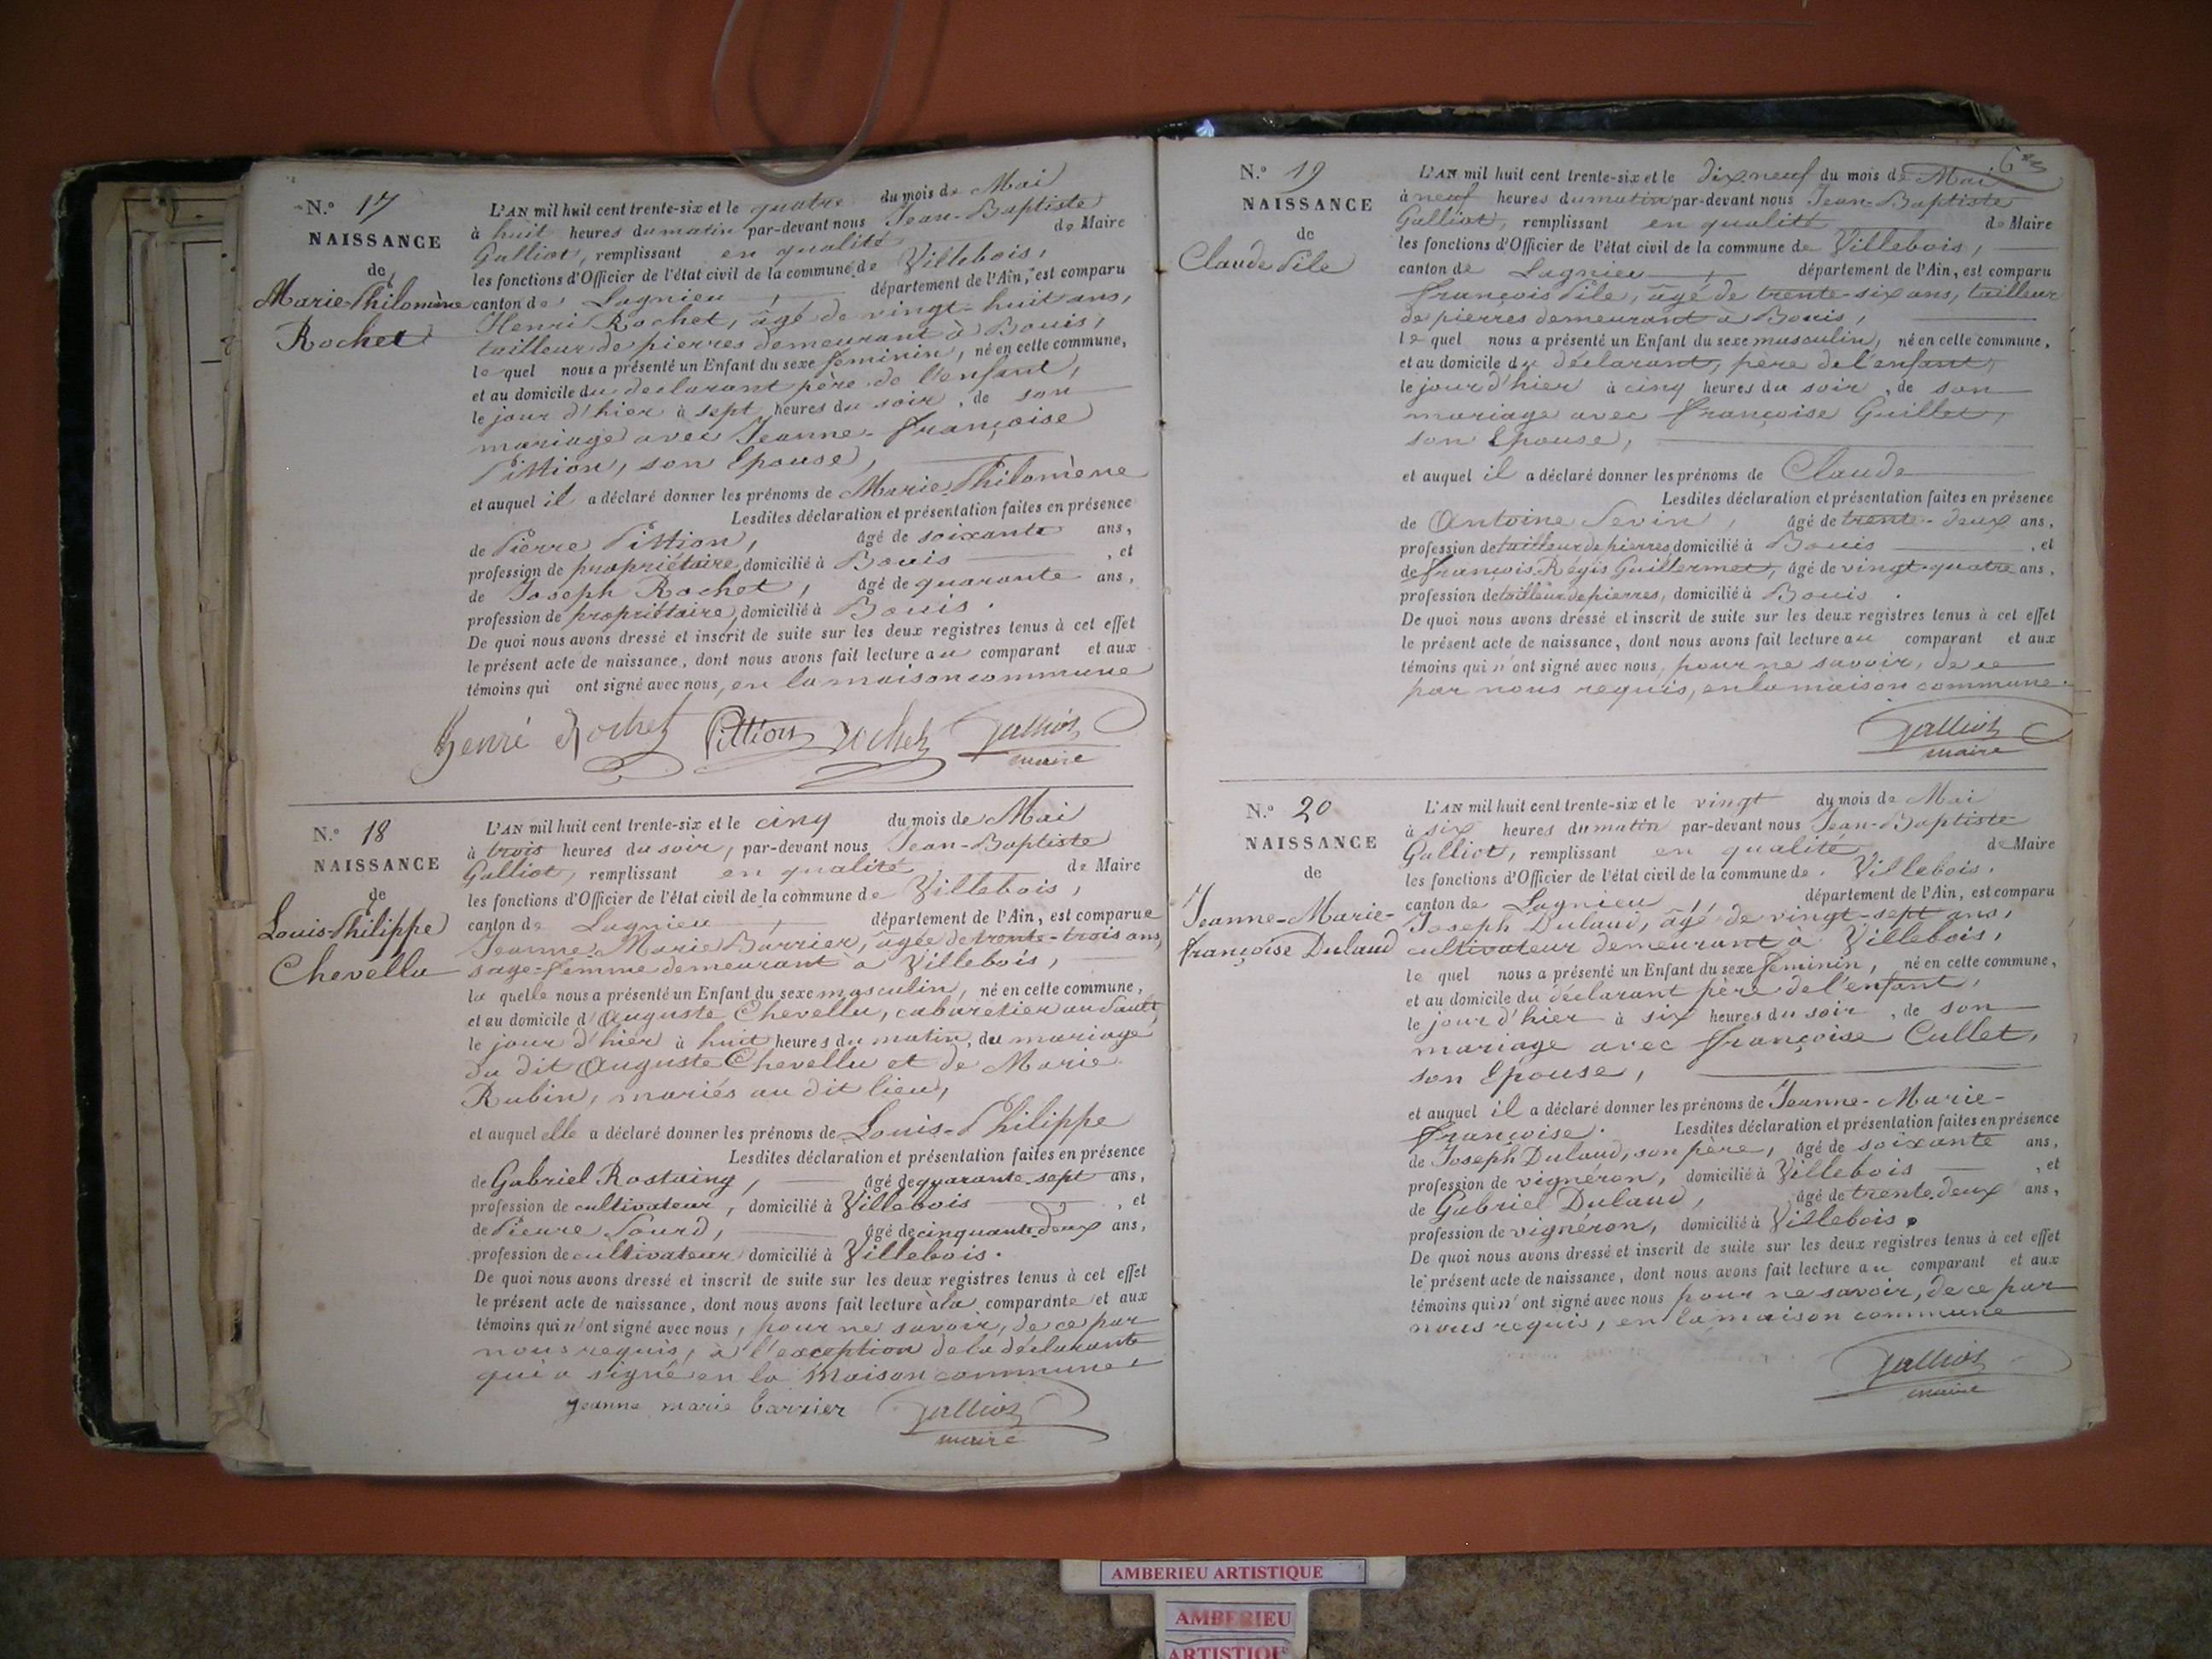 N.° 17
NAISSANCE
de
Marie-Philomène
Rochet
L'AN mil huit cent trente-six et le quatre du mois de Mai
à huit heures du matin par-devant nous Jean-Baptiste
Galliot, remplissant en qualité de Maire
les fonctions d'Officier de l'état civil de la commune de Villebois,
canton de Lagnieu, département de l'Ain, est comparu
Henri Rochet, âgé de vingt-huit ans,
tailleur de pierres demeurant à Bouis,
le quel nous a présenté un Enfant du sexe féminin, né en cette commune,
et au domicile du déclarant père de l'enfant,
le jour d'hier à sept heures du soir, de son
mariage avec Jeanne-Françoise
Pittion, son Epouse,
et auquel il a déclaré donner les prénoms de Marie-Philomène
Lesdites déclaration et présentation faites en présence
de Pierre Pittion, âgé de soixante ans,
profession de propriétaire, domicilié à Bouis, et
de Joseph Rochet, âgé de quarante ans,
profession de propriétaire, domicilié à Bouis.
De quoi nous avons dressé et inscrit de suite sur les deux registres tenus à cet effet
le présent acte de naissance, dont nous avons fait lecture au comparant et aux
témoins qui ont signé avec nous, en la maison commune
henri Rochet Pittion rochet Galliot
maire
N.° 18
NAISSANCE
de
Louis-Philippe
Chevellu
L'AN mil huit cent trente-six et le cinq du mois de Mai
à trois heures du soir, par-devant nous Jean-Baptiste
Galliot, remplissant en qualité de Maire
les fonctions d'Officier de l'état civil de la commune de Villebois,
canton de Lagnieu, département de l'Ain, est comparue
Jeanne-Marie Barrier, âgée de trente-trois ans,
sage-femme demeurant à Villebois,
la quelle nous a présenté un Enfant du sexe masculin, né en cette commune,
et au domicile d'Auguste Chevellu, cabaretier au Sault,
le jour d'hier à huit heures du matin, du mariage
du dit Auguste Chevellu et de Marie
Rubin, mariés au dit lieu,
et auquel elle a déclaré donner les prénoms de Louis-Philippe
Lesdites déclaration et présentation faites en présence
de Gabriel Rostaing, âgé de quarante-sept ans,
profession de cultivateur, domicilié à Villebois, et
de Pierre Lourd, âgé de cinquante-deux ans,
profession de cultivateur domicilié à Villebois.
De quoi nous avons dressé et inscrit de suite sur les deux registres tenus à cet effet
le présent acte de naissance, dont nous avons fait lecture à la comparante et aux
témoins qui n'ont signé avec nous, pour ne savoir, de ce par
nous requis, à l'exception de la déclarante
qui a signé en la Maison commune
jeanne marie barrier Galliot
maire
6
N.° 19
NAISSANCE
de
Claude Pile
L'AN mil huit cent trente-six et le dix-neuf du mois de Mai
à neuf heures du matin par-devant nous Jean-Baptiste
Galliot, remplissant en qualité de Maire
les fonctions d'Officier de l'état civil de la commune de Villebois,
canton de Lagnieu, département de l'Ain, est comparu
François Pile, âgé de trente-six ans, tailleur
de pierres demeurant à Bouis,
le quel nous a présenté un Enfant du sexe masculin, né en cette commune,
et au domicile du déclarant, père de l'enfant,
le jour d'hier à cinq heures du soir, de son
mariage avec Françoise Guillet,
son Epouse,
et auquel il a déclaré donner les prénoms de Claude
Lesdites déclaration et présentation faites en présence
de Antoine Sevin, âgé de trente-deux ans,
profession de tailleur de pierres, domicilié à Bouis, et
de François Régis Guillermet, âgé de vingt-quatre ans,
profession de tailleur de pierres, domicilié à Bouis.
De quoi nous avons dressé et inscrit de suite sur les deux registres tenus à cet effet
le présent acte de naissance, dont nous avons fait lecture au comparant et aux
témoins qui n'ont signé avec nous, pour ne savoir, de ce
par nous requis, en la maison commune.
Galliot
maire
N.° 20
NAISSANCE
de
Jeanne-Marie-
Françoise Dulaud
L'AN mil huit cent trente-six et le vingt du mois de Mai
à six heures du matin par-devant nous Jean-Baptiste
Galliot, remplissant en qualité de Maire
les fonctions d'Officier de l'état civil de la commune de Villebois.
canton de Lagnieu, département de l'Ain, est comparu
Joseph Dulaud, âgé de vingt-sept ans,
cultivateur demeurant à Villebois,
le quel nous a présenté un Enfant du sexe féminin, né en cette commune,
et au domicile du déclarant père de l'enfant,
le jour d'hier à six heures du soir, de son
mariage avec Françoise Cullet,
son Epouse,
et auquel il a déclaré donner les prénoms de Jeanne-Marie-
Françoise. Lesdites déclaration et présentation faites en présence
de Joseph Dulaud, son père, âgé de soixante ans,
profession de vignéron, domicilié à Villebois, et
de Gabriel Dulaud, âgé de trente-deux ans,
profession de vignéron, domicilié à Villebois.
De quoi nous avons dressé et inscrit de suite sur les deux registres tenus à cet effet
le présent acte de naissance, dont nous avons fait lecture au comparant et aux
témoins qui n'ont signé avec nous pour ne savoir, de ce par
nous requis, en la maison commune
Galliot
maire
AMBERIEU ARTISTIQUE
AMBERIEU
ARTISTIQUE